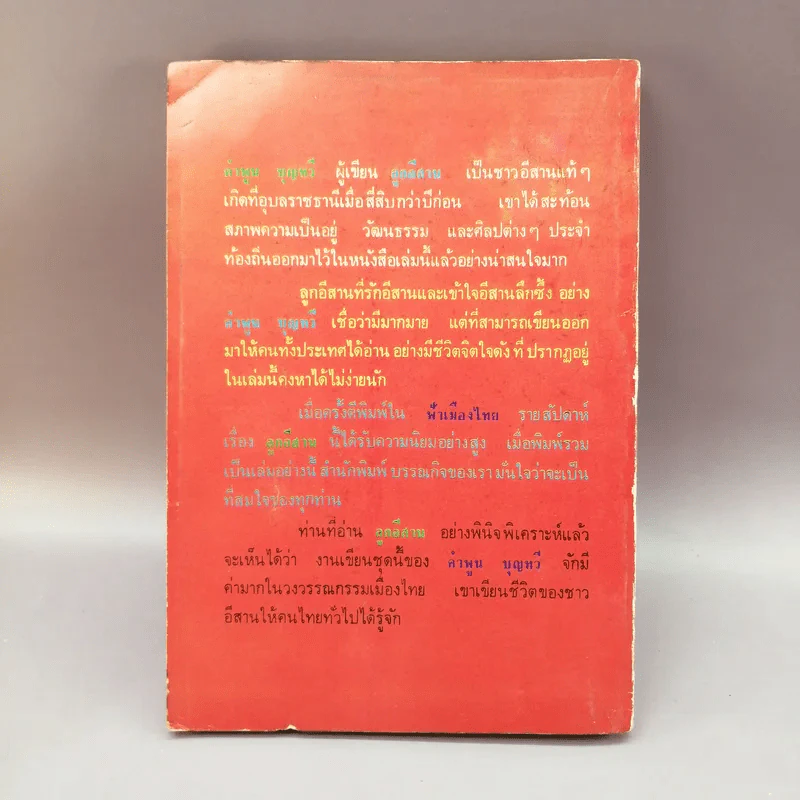 คำพูน บุญทวี ผู้เขียน ลูกอีสาน เป็นชาวอีสานแท้ๆ
เกิดที่อุบลราชธานีเมื่อสี่สิบกว่าปีก่อน เขาได้สะท้อน
สภาพความเป็นอยู่ วัฒนธรรม และศิลปต่างๆ ประจำ
ท้องถิ่นออกมาไว้ในหนังสือเล่มนี้แล้วอย่างน่าสนใจมาก
ลูกอีสานที่รักอีสานและเข้าใจอีสานลึกซึ้ง อย่าง
คำพูน บุญทวี เชื่อว่ามีมากมาย แต่ที่สามารถเขียนออก
มาให้คนทั้งประเทศได้อ่าน อย่างมีชีวิตจิตใจดัง ที่ ปรากฏอยู่
ในเล่มนี้คงหาได้ไม่ง่ายนัก
เมื่อครั้งตีพิมพ์ใน ฟ้าเมืองไทย รายสัปดาห์
เรื่อง ลูกอีสาน นี้ได้รับความนิยมอย่างสูง เมื่อพิมพ์รวม
เป็นเล่มอย่างนี้ สำนักพิมพ์ บรรณกิจของเรา มั่นใจว่าจะเป็น
ที่สมใจของทุกท่าน
ท่านที่อ่าน ลูกอีสาน อย่างพินิจพิเคราะห์แล้ว
จะเห็นได้ว่า งานเขียนชุดนี้ของ คำพูน บุญทวี จักมี
ค่ามากในวงวรรณกรรมเมืองไทย เขาเขียนชีวิตของชาว
อีสานให้คนไทยทั่วไปได้รู้จัก